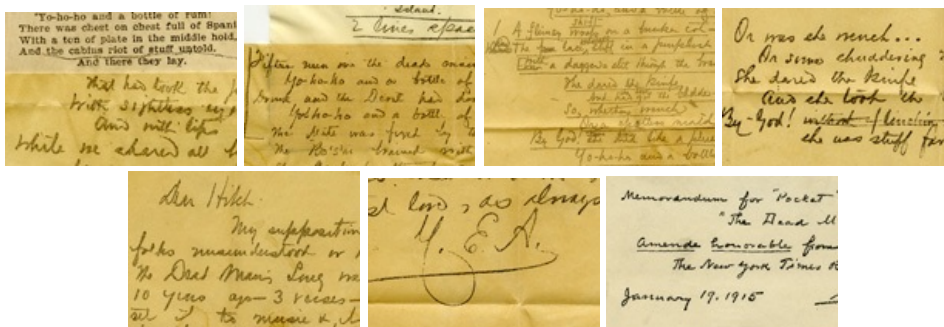 'Yo-ho-ho and a bottle of rum!
There was chest on chest full of Spani
With a ton of plate in the middle hold,
And the cabins riot of stuff untold.
And there they lay,
That had took the p
With sightless
And with lips
While we shared all b
Island.
2 lines space
Fifteen men on the dead man
Yo-ho-ho and a bottle of
Drink and the Devil had do
Yo-ho-ho and a bottle of
The Mate was fixed by t
The Bo's'n brained with
Yo-ho-ho and a bottle of
A flimsy
on a bunker cot
With a dagger slit thro' the
She dared the knife
So, whether wench
By God! she died like a
Yo-ho-ho and a bottle
Or was she wench...
Or some shuddering
She dared the knife
And she took the
By-God!
she was stuff for
Dear Hitch.
My supposition
folks misunderstood or
the Dead Man's Song wa
10 years ago—3 verses—
set it to music &
love, as always
Y. E. A.
Memorandum for "Pocket
"The Dead M
Amende honorable from
The New York Times
January 19. 1915